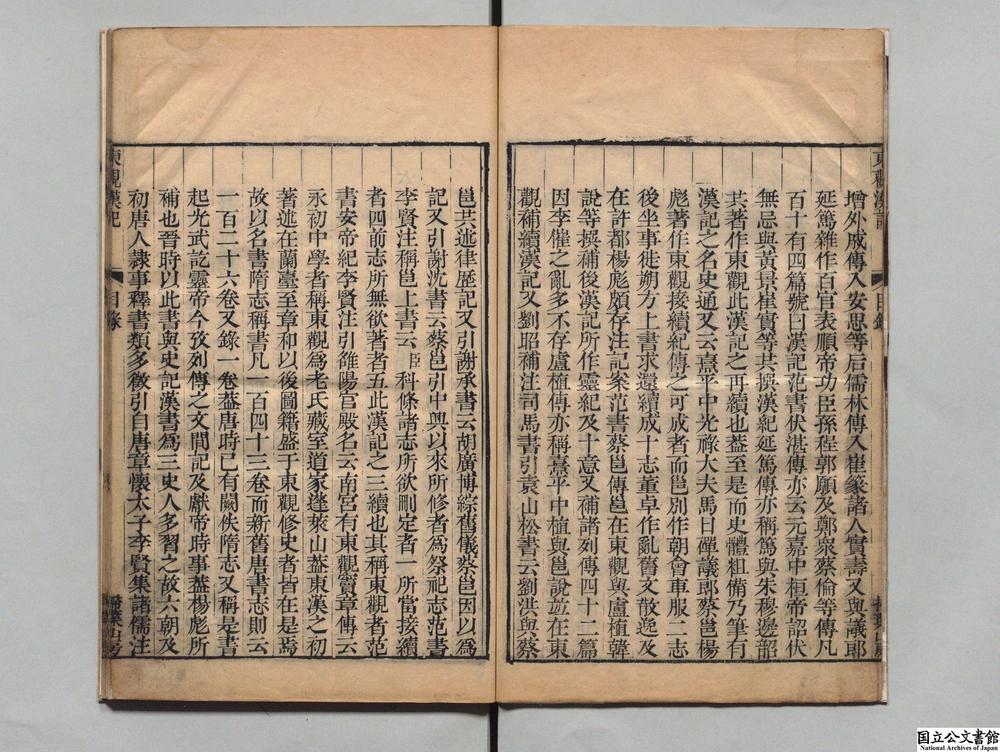 增外戚傳入安思等后儒林傳入崔篆諸人寔壽又與議郎
延篤雜作百官表順帝功臣孫程郭願及鄭衆蔡倫等傳凡
百十有四篇號曰漢記范書伏湛傳亦云元嘉中桓帝詔伏
無忌與黃景崔寔等共撰漢紀延篤傳亦稱篤與朱穆邊韶
共著作東觀此漢記之再續也葢至是而史體粗備乃筆有
漢記之名史通又云熹平中光祿大夫馬日磾議郎蔡邕楊
彪著作東觀接續紀傳之可成者而邕別作朝會車服二志
後坐事徙朔方上書求還續成十志董卓作亂舊文散逸及
在許都楊彪頗存注記案范書蔡邕傳邕在東觀與盧植韓
說等撰補後漢記所作靈紀及十意又補諸列傳四十二篇
因李傕之亂多不存盧植傳亦稱熹平中植與邕說竝在東
觀補續漢記又劉昭補注司馬書引袁山松書云劉洪與蔡
東觀漢記
目錄
邕共述律歷記又引謝承書云胡廣博綜舊儀蔡邕因以為
記又引謝沈書云蔡邕引中興以來所修者為祭祀志范書
李賢注稱邕上書云臣科條諸志所欲刪定者一所當接續
者四前志所無欲著者五此漢記之三續也其稱東觀者范
書安帝紀李賢注引雒陽宮殿名云南宮有東觀竇章傳云
永初中學者稱東觀為老氏藏室道家蓬萊山葢東漢之初
著述在蘭臺至章和以後圖籍盛于東觀修史者皆在是焉
故以名書隋志稱書凡一百四十三卷而新舊唐書志則云
一百二十六卷又錄一卷葢唐時已有闕佚隋志又稱是書
起光武訖靈帝今攷列傳之文間記及獻帝時事葢楊彪所
補也晉時以此書與史記漢書為三史人多習之故六朝及
初唐人隸事釋書類多徵引自唐章懷太子李賢集諸儒注
東觀漢記
目錄
掃葉山房
国立公文書館
National Archives of Japan